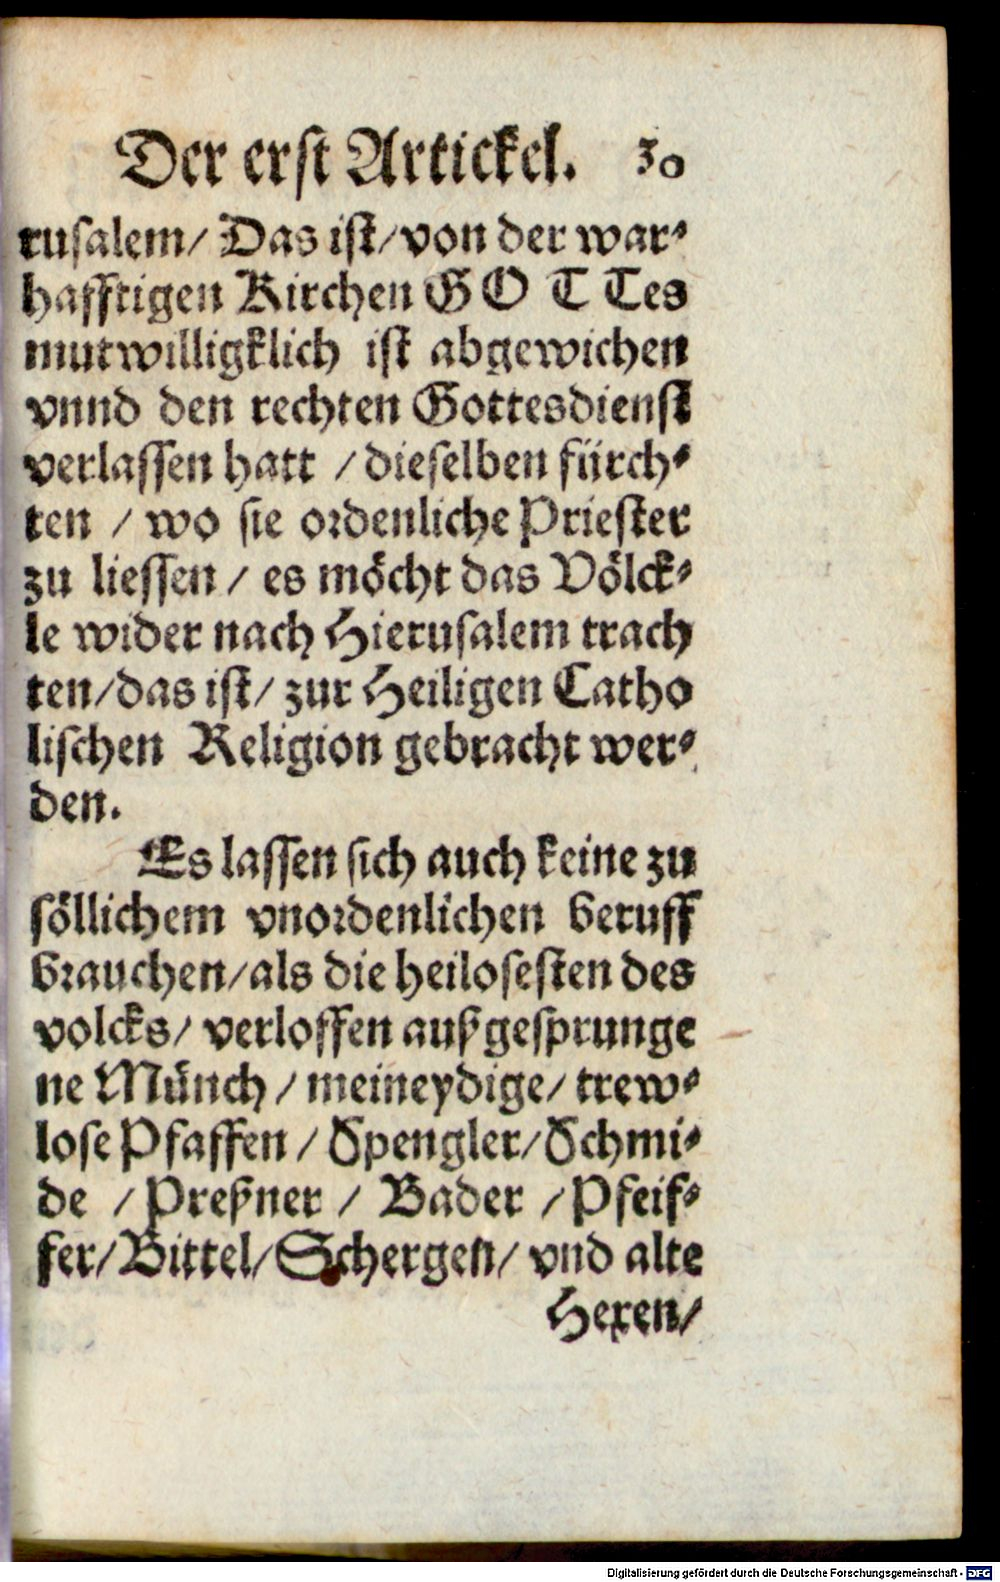 Der erst Artickel. 30
rusalem/ Das ist/ von der war⸗
hafftigen Kirchen GOTTes
mutwilligklich ist abgewichen
vnnd den rechten Gottesdienst
verlassen hatt / dieselben fürch⸗
ten / wo sie ordenliche Priester
zu liessen / es möcht das Völck⸗
le wider nach Hierusalem trach
ten/ das ist/ zur Heiligen Catho
lischen Religion gebracht wer⸗
den.
Es lassen sich auch keine zu
söllichem vnordenlichen beruff
brauchen/ als die heilosesten des
volcks/ verloffen außgesprunge
ne Münch / meineydige/ trew⸗
lose Pfaffen / Spengler/ Schmi⸗
de / Preßner / Bader / Pfeif⸗
fer/ Bittel/ Schergen/ vnd alte
Hexen/
Digitalisierung gefördert durch die Deutsche Forschungsgemeinschaft - DFG